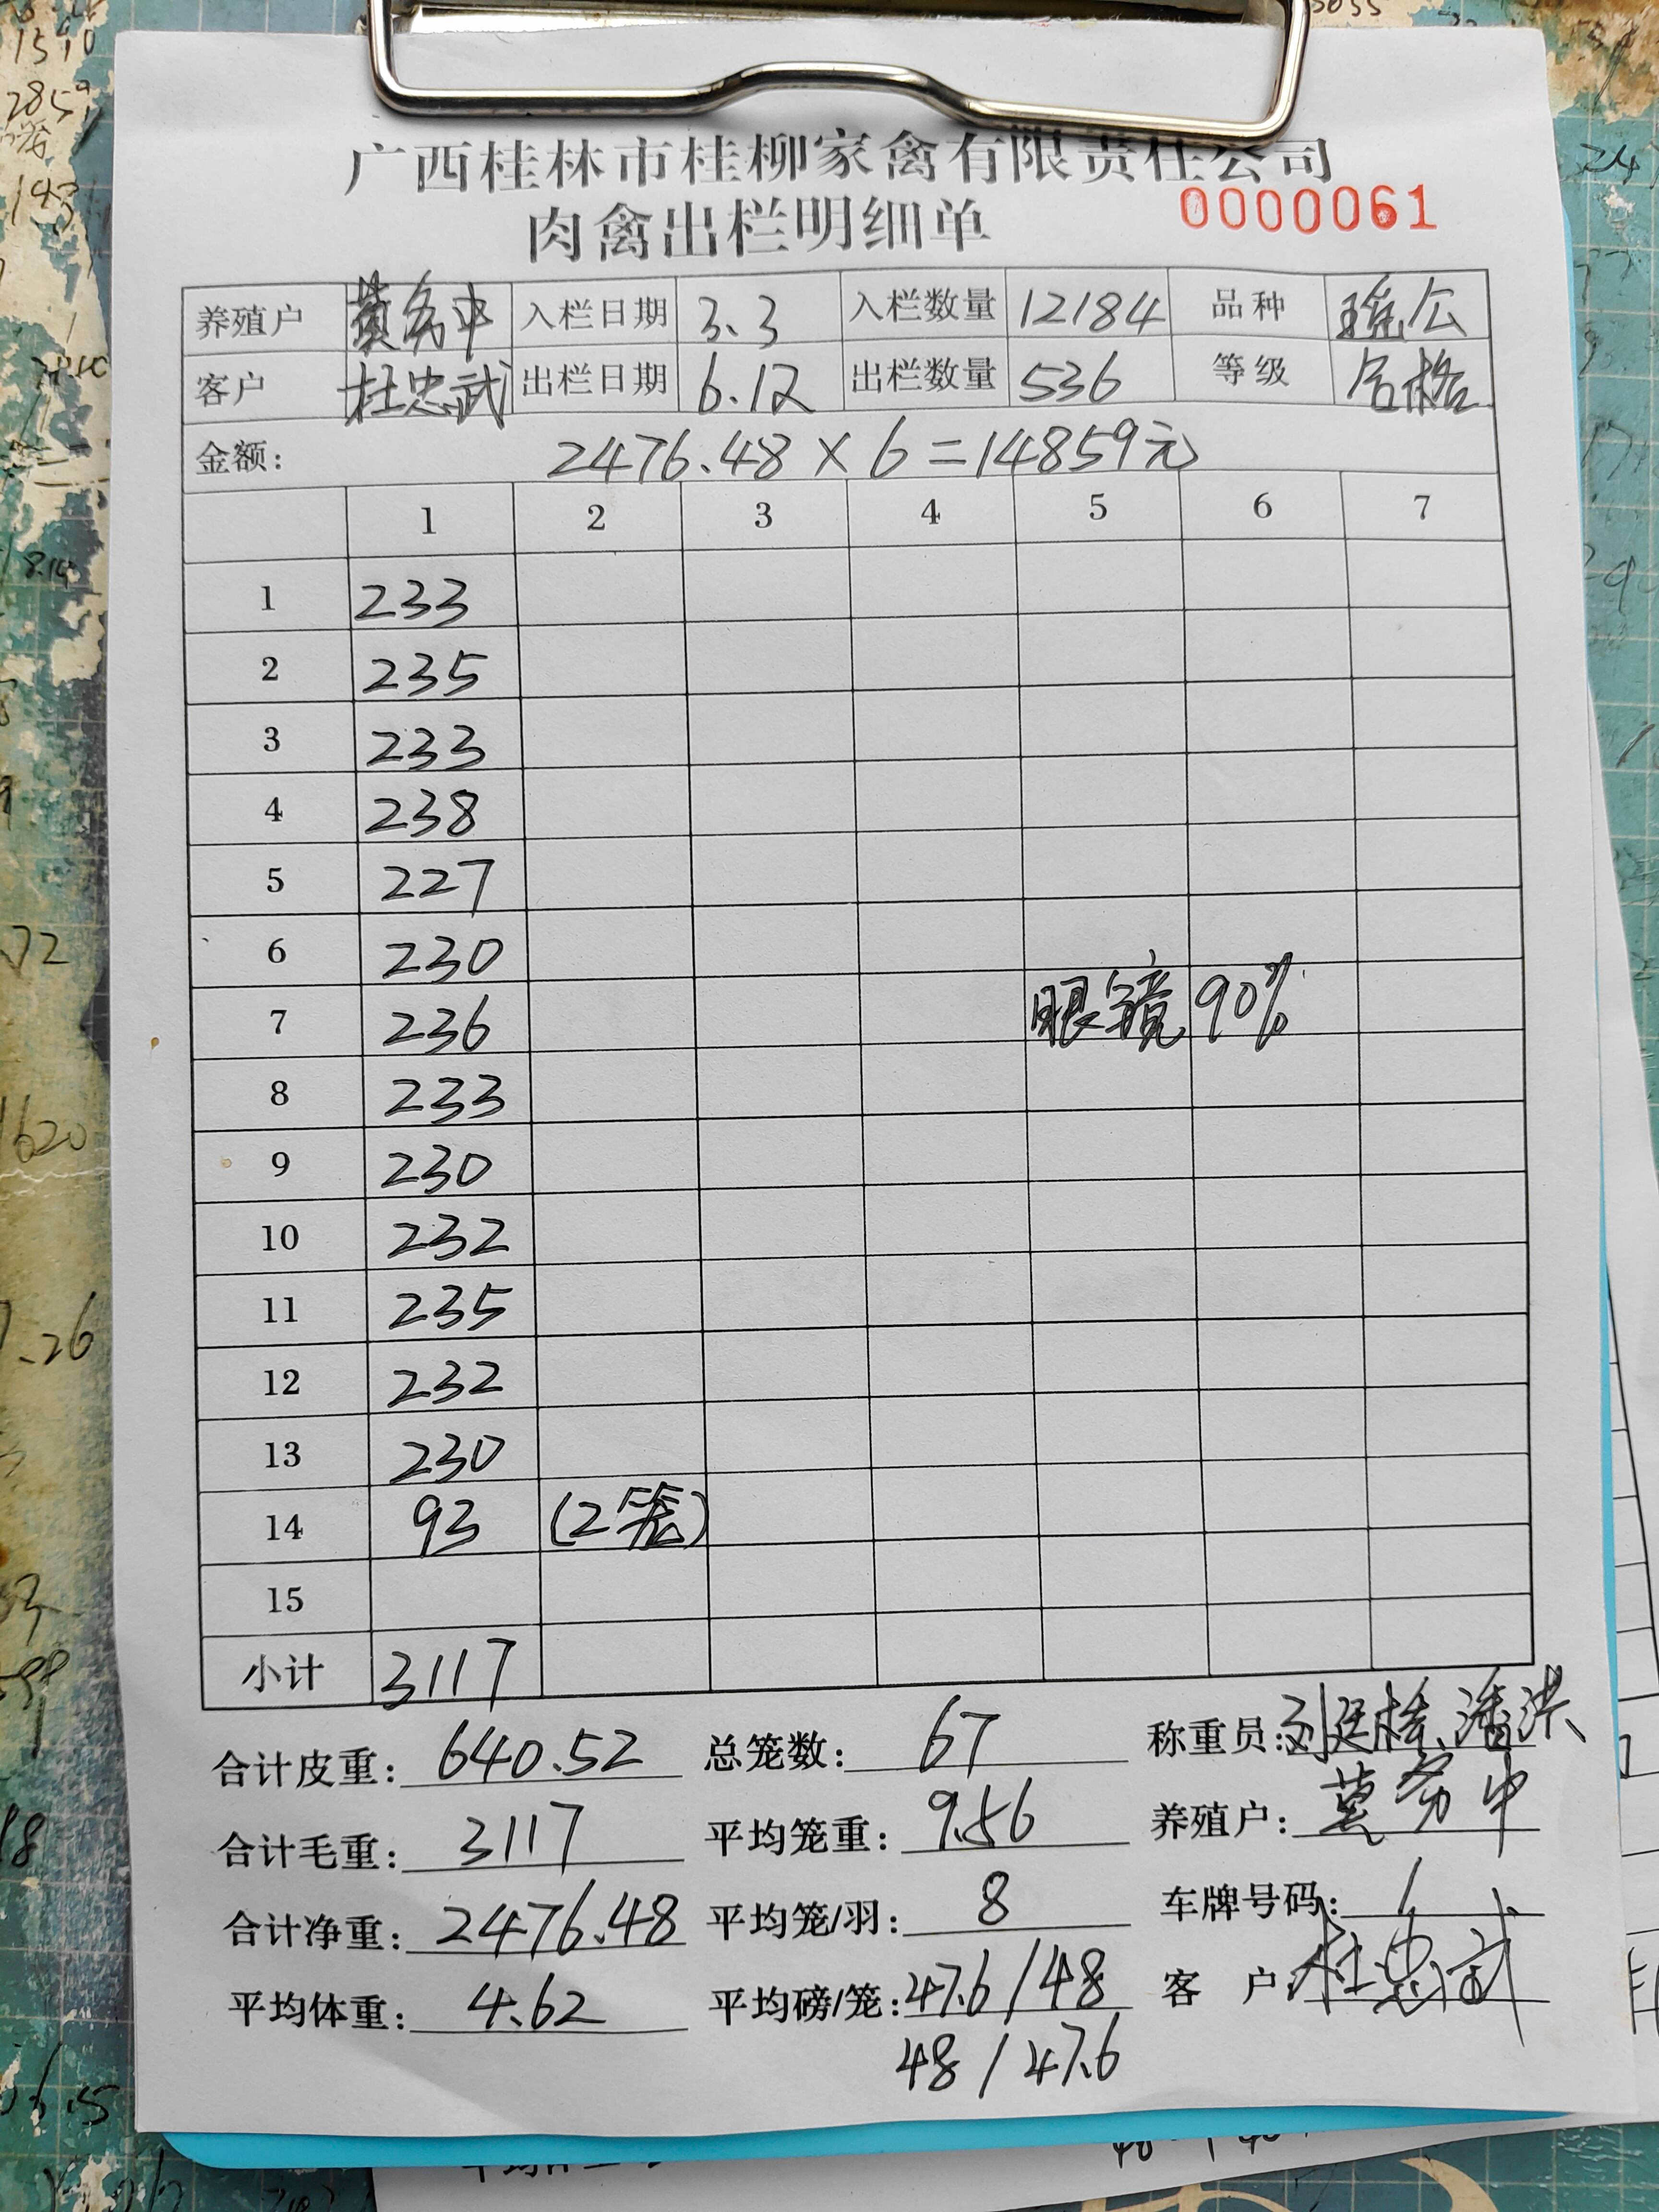 广西桂林市桂柳家禽有限责任公司
肉禽出栏明细单 0000061
养殖户 黄务中 入栏日期 3.3 入栏数量 12184 品种 瑶公
客户 杜忠武 出栏日期 6.12 出栏数量 536 等级 合格
金额: 2476.48×6=14859元
1 2 3 4 5 6 7
1 233
2 235
3 233
4 238
5 227
6 230
7 236 眼镜90%
8 233
9 230
10 232
11 235
12 232
13 230
14 93 (2笼)
15
小计 3117
合计皮重: 640.52 总笼数: 67 称重员: 刘廷桂、潘洪
合计毛重: 3117 平均笼重: 9.56 养殖户: 黄务中
合计净重: 2476.48 平均笼/羽: 8 车牌号码: /
平均体重: 4.62 平均磅/笼: 47.6/48 客 户: 杜忠武
48/47.6